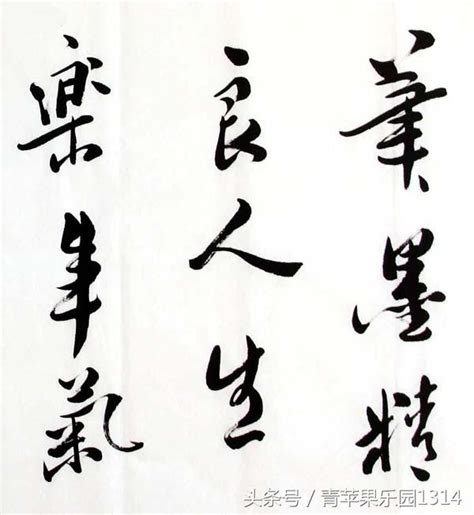 筆墨精
良人生
樂事氣
头条号 / 青苹果乐园1314